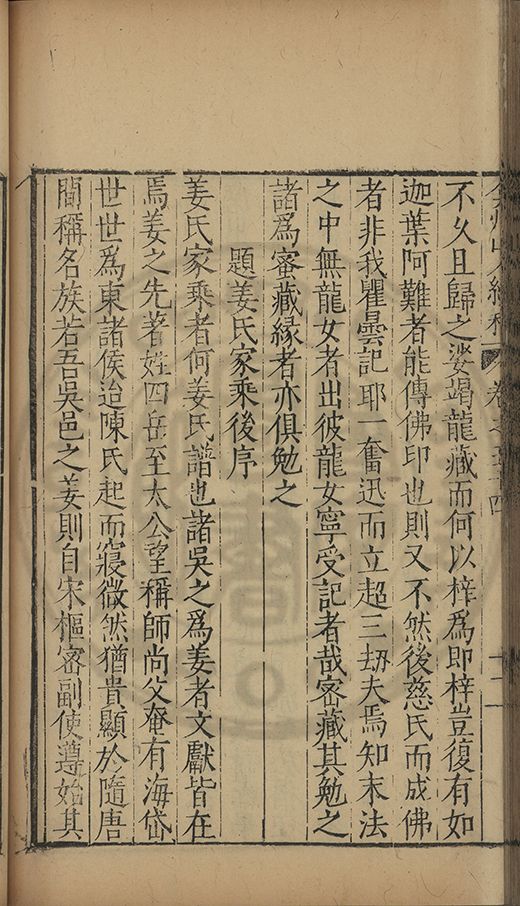 不久且歸之娑竭龍藏而何以梓為即梓豈復有如
迦葉阿難者能傳佛印也則又不然後慈氏而成佛
者非我瞿曇記耶一奮迅而立超三劫夫焉知末法
之中無龍女者出彼龍女寧受記者哉密藏其勉之
諸爲密藏緣者亦俱勉之
題姜氏家乘後序
姜氏家乘者何姜氏譜也諸吳之爲姜者文獻皆在
焉姜之先著姓四岳至太公望稱師尚父奄有海岱
世世爲東諸侯迨陳氏起而寖微然猶貴顯於隋唐
間稱名族若吾吳邑之姜則自宋樞密副使遵始其